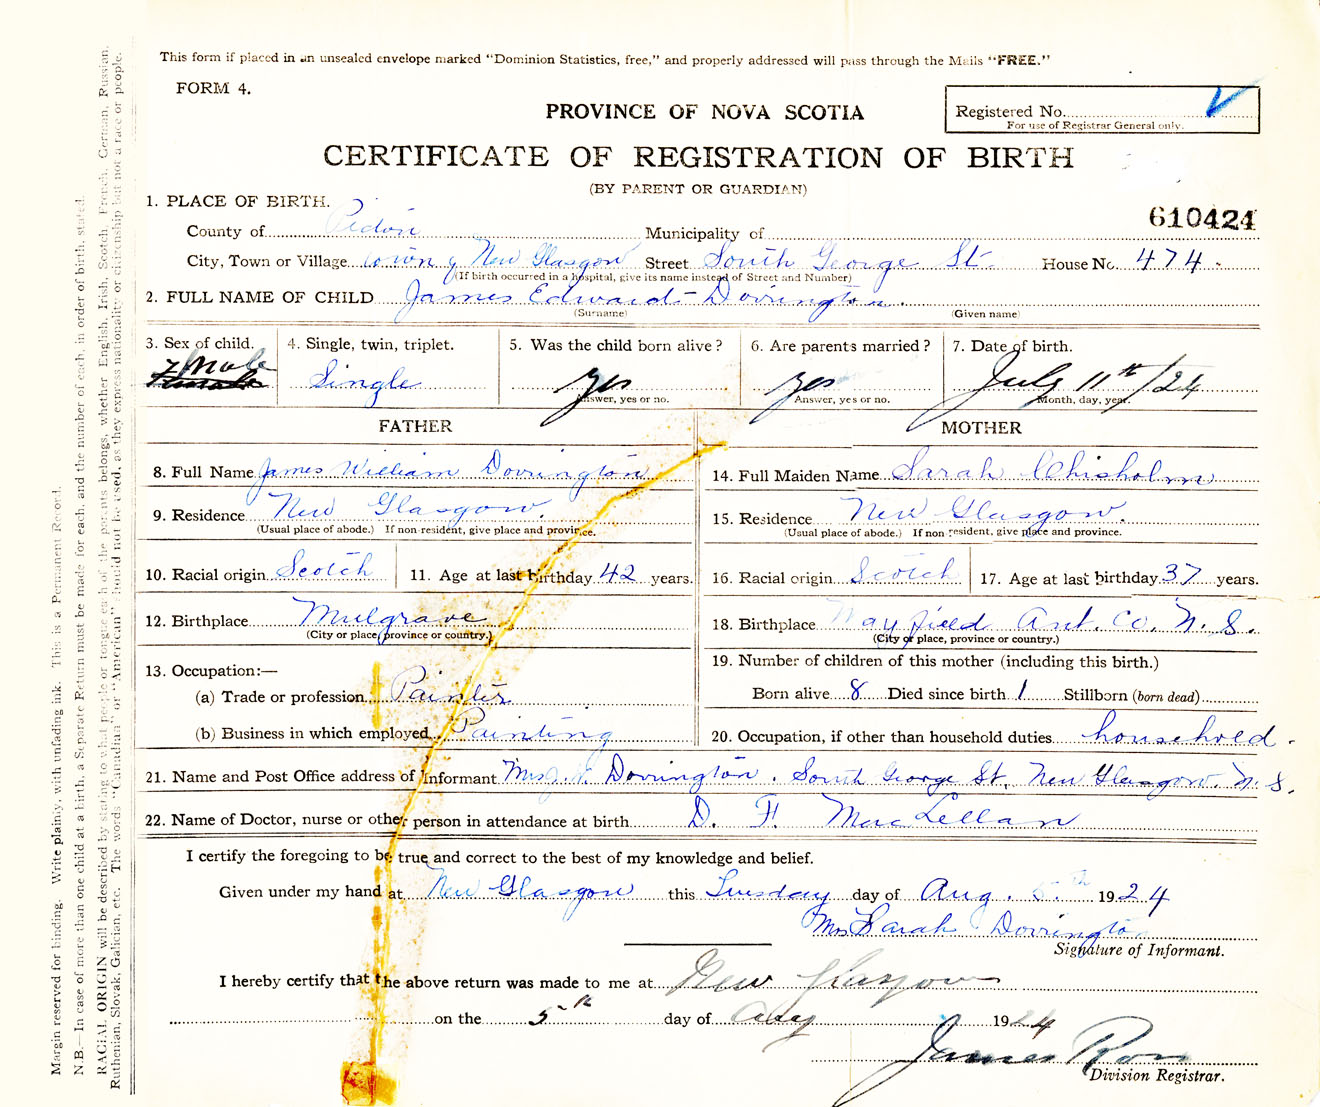 This form if placed in an unsealed envelope marked "Dominion Statistics, free," and properly addressed will pass through the Mails "FREE."
FORM 4.
PROVINCE OF NOVA SCOTIA
Registered No.
For use of Registrar General only.
CERTIFICATE OF REGISTRATION OF BIRTH
(BY PARENT OR GUARDIAN)
610424
1. PLACE OF BIRTH.
County of Pictou Municipality of
City, Town or Village town of New Glasgow Street South George St. House No. 474
(If birth occurred in a hospital, give its name instead of Street and Number)
2. FULL NAME OF CHILD James Edward Dorrington.
(Surname) (Given name)
3. Sex of child. 4. Single, twin, triplet. 5. Was the child born alive? 6. Are parents married? 7. Date of birth.
Male Single yes yes July 11th/24
Answer, yes or no. Answer, yes or no. Month, day, year.
FATHER MOTHER
8. Full Name James William Dorrington 14. Full Maiden Name Sarah Chisholm
9. Residence New Glasgow. 15. Residence New Glasgow.
(Usual place of abode.) If non-resident, give place and province. (Usual place of abode.) If non-resident, give place and province.
10. Racial origin Scotch 11. Age at last birthday 42 years. 16. Racial origin Scotch 17. Age at last birthday 37 years.
12. Birthplace Mulgrave 18. Birthplace Mayfield Ant. Co. N. S.
(City or place, province or country.) (City or place, province or country.)
13. Occupation:— 19. Number of children of this mother (including this birth.)
(a) Trade or profession Painter Born alive 8 Died since birth 1 Stillborn (born dead)
(b) Business in which employed Painting 20. Occupation, if other than household duties household.
21. Name and Post Office address of Informant Mrs J. Dorrington. South George St. New Glasgow. N. S.
22. Name of Doctor, nurse or other person in attendance at birth D. F. MacLellan
I certify the foregoing to be true and correct to the best of my knowledge and belief.
Given under my hand at New Glasgow this Tuesday day of Aug. 5th 1924
Mrs Sarah Dorrington
Signature of Informant.
I hereby certify that the above return was made to me at New Glasgow
on the 5th day of Aug 1924
James Ross
Division Registrar.
Margin reserved for binding. Write plainly, with unfading ink. This is a Permanent Record.
N.B.—In case of more than one child at a birth, a Separate Return must be made for each, and the number of each, in order of birth, stated.
RACIAL ORIGIN will be described by stating to what people or tongue each of the parents belongs, whether English, Irish, Scotch, French, German, Russian,
Ruthenian, Slovak, Galician, etc. The words "Canadian" or "American" should not be used, as they express nationality or citizenship but not a race or people.